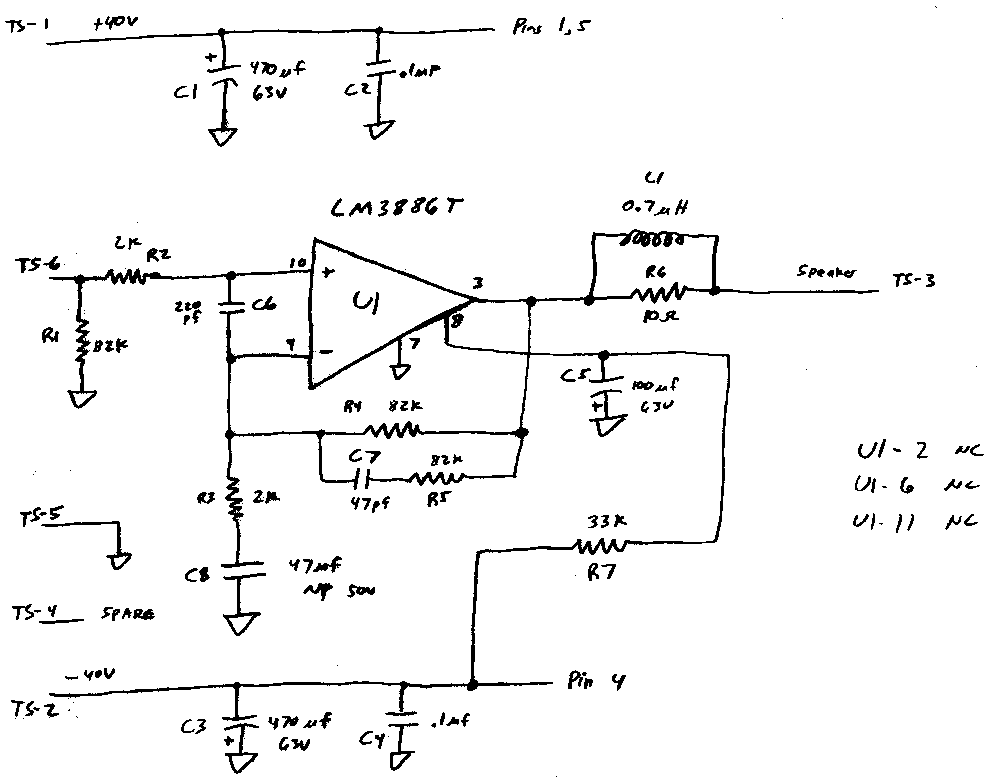 TS-1 +40V Pins 1,5
+ 470 µf .1µF
C1 63V C2
LM3886T
L1
0.7µH
2K R2
TS-6 10 + 3 Speaker TS-3
220 pf C6 U1 8 R6
10Ω
R1 82K
9 - 7
C5 100µf
+ 63V
R4 82K
C7 82K
47pf R5
R3 2K
U1-2 NC
U1-6 NC
U1-11 NC
TS-5
33K
R7
C8 47µf
NP 50V
TS-4 SPARE
-40V Pin 4
TS-2
C3 470µf C4 .1mf
+ 63V